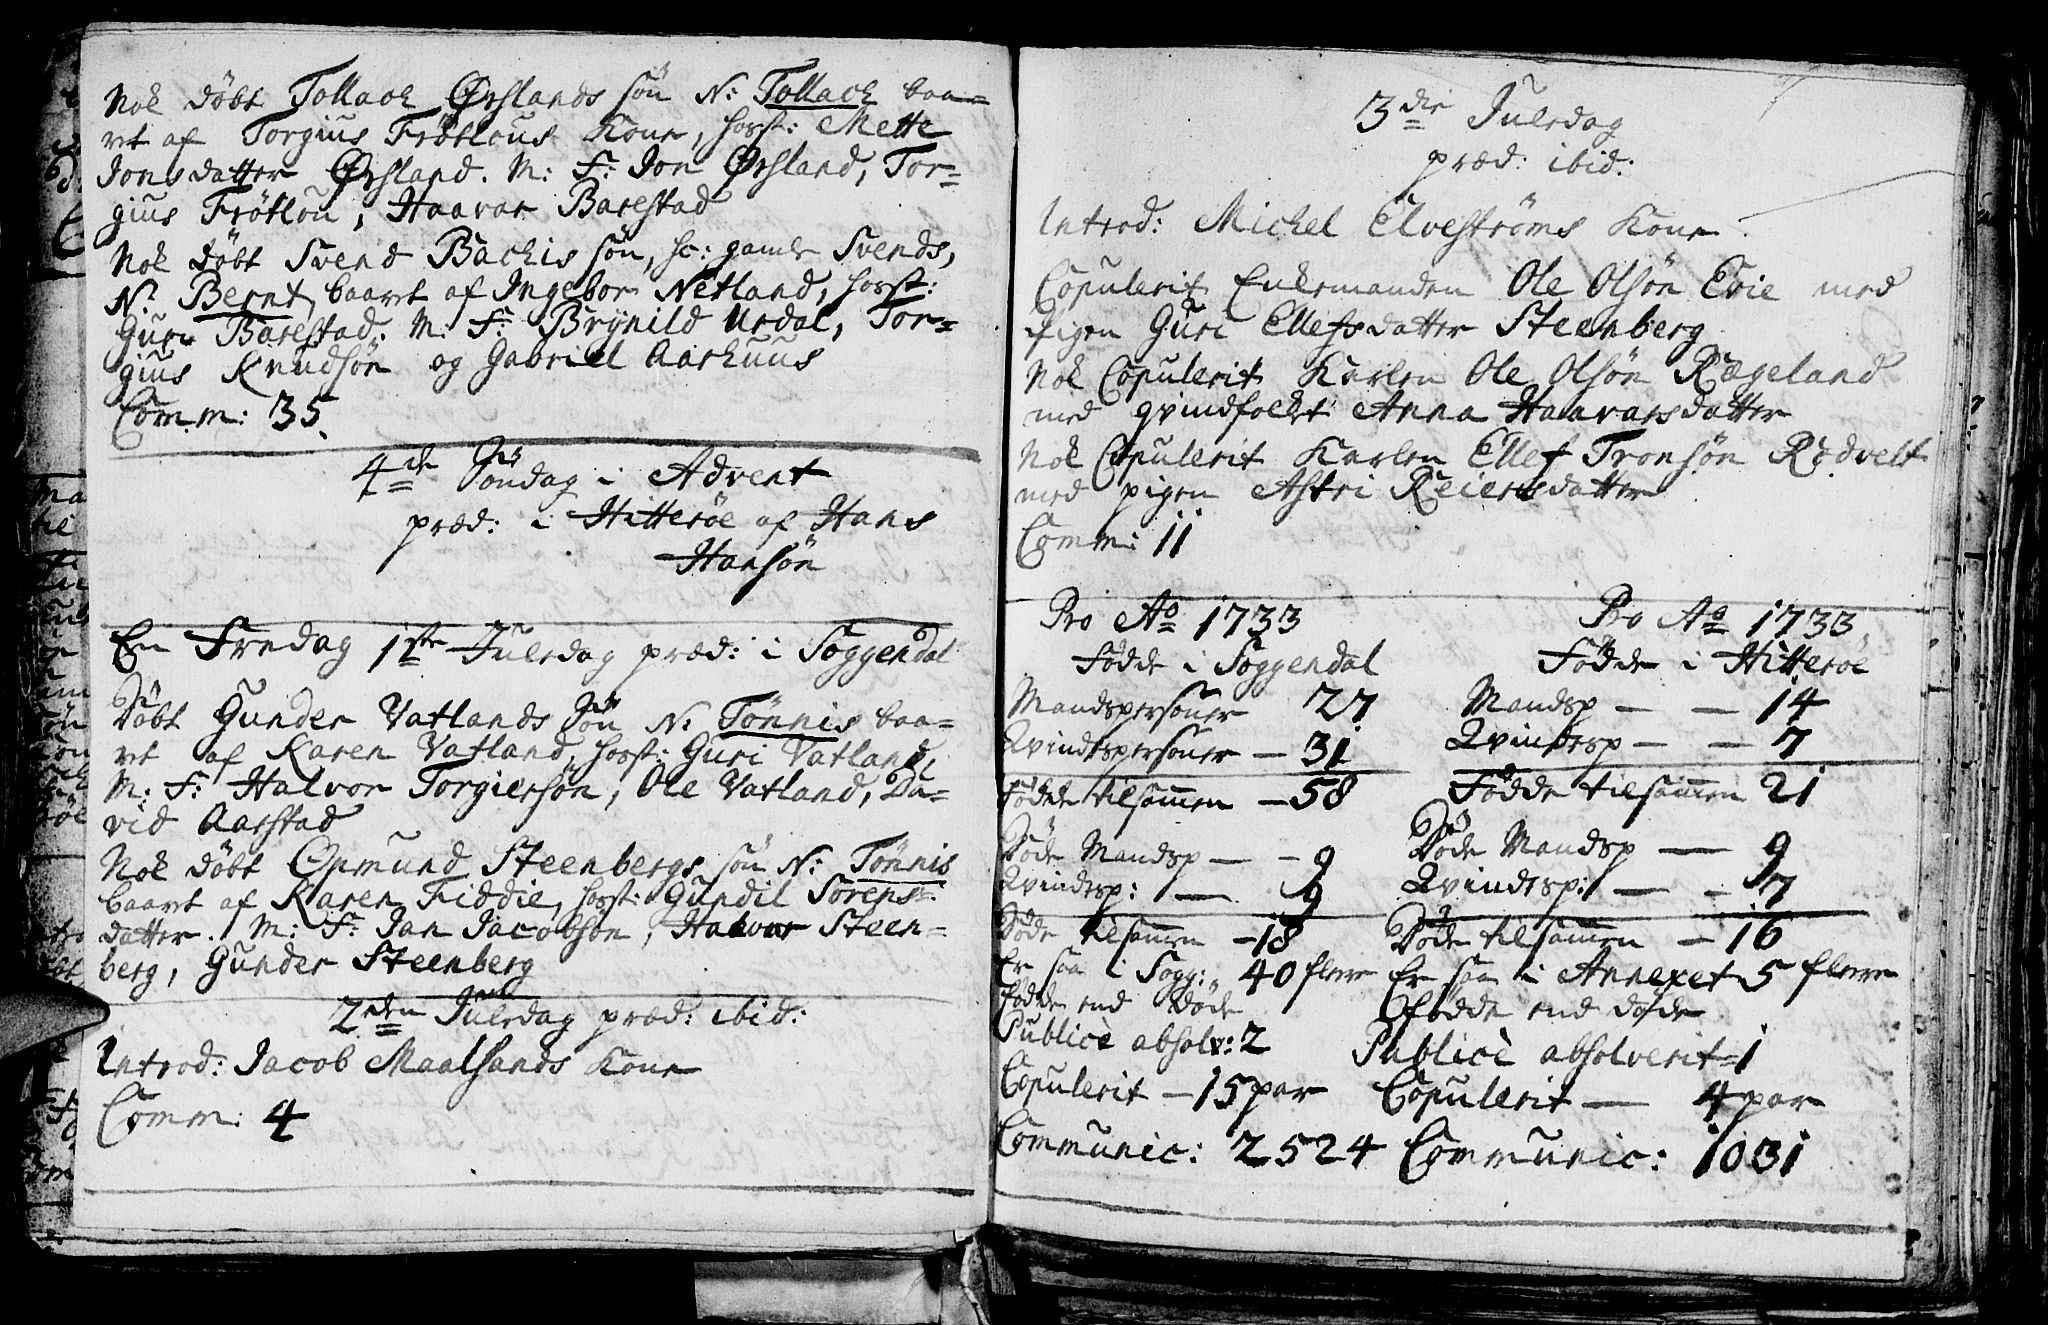 Nok döbt Tollach Ørslands sön N: Tollach baa=
ret af Torgius Frötlous Kone, hosst: Mette
Jonsdatter Ørsland. M: F: Jon Ørsland, Tor=
gius Frötlou, Haavar Barestad
Nok döbt Svend Bachis sön, sc: gamle Svends,
N: Bernt, baaret af Ingebor Netland, hosst:
Guri Barestad. M: F: Brÿnild Urdal, Tor=
gius Knudsön og Gabriel Aarhuus
Comm: 35.
4de Söndag i Advent
præd: i Hitteröe af Hans
Hansön
En Fredag 1ste Juledag præd: i Soggendal
Döbt Gunder Vatlands Sön N: Tönnis baa=
ret af Karen Vatland, hosst: Guri Vatland,
M: F: Halvor Torgiersön, Ole Vatland, Da=
vid Aarstad
Nok döbt Omund Steenbergs sön N: Tönnis
baaret af Karen Fiddie, hosst: Gundil Sörens
datter. M: F: Jan Jacobsön, Halvor Steen=
berg, Gunder Steenberg
2den Juledag præd: ibid:
Introd: Jacob Maalsands Kone
Comm: 4
3die Juledag
præd: ibid:
Introd: Michel Elveströms Kone
Copulerit Enkemanden Ole Olsön Evie med
Pigen Guri Ellefsdatter Steenberg
Nok Copulerit Karlen Ole Olsön Rægeland
med qvindfolket Anna Haavarsdatter
Nok Copulerit Karlen Ellef Tronsön Rödvelt
med pigen Astri Reiersdatter
Comm: 11
Pro Ao 1733
Födde i Soggendal
Mandspersoner 27
Qvindespersoner — 31
Födde tilsammen — 58
Döde Mandsp — - 9
Qvindesp: — 9
Döde tilsammen - 18
Er saa i Sogg: 40 flere
födde end döde
Publicè absolv: 2
Copulerit — 15 par
Communic: 2524
Pro Ao 1733
Födde i Hitteröe
Mandsp — — 14
Qvindesp — — 7
Födde tilsammen 21
Döde Mandsp — 9
Qvindesp: — - 7
Döde tilsammen — 16
Er saa i Annexet 5 flere
födde end döde
Publicè absolverit = 1
Copulerit — 4 par
Communic: 1031